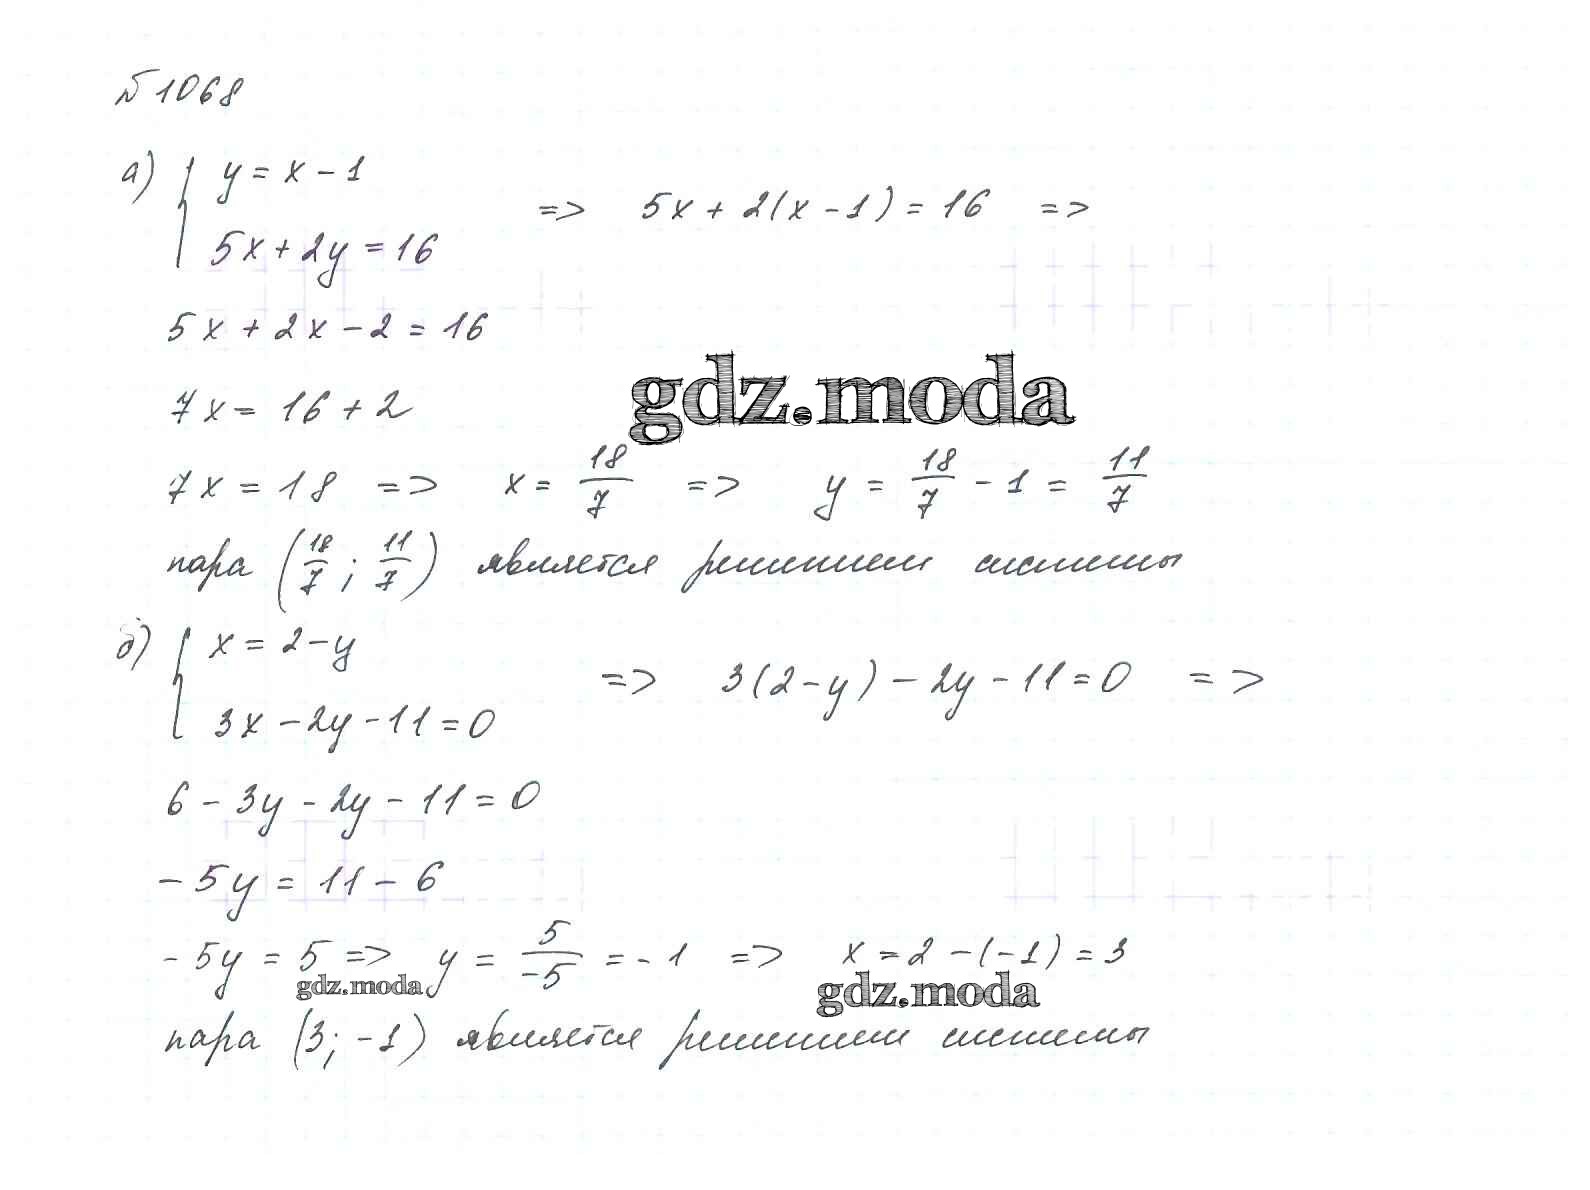 №1068
а) { y = x - 1
5x + 2y = 16 => 5x + 2(x - 1) = 16 =>
5x + 2x - 2 = 16
gdz.moda
7x = 16 + 2
7x = 18 => x = 18/7 => y = 18/7 - 1 = 11/7
пара (18/7 ; 11/7) является решением системы
б) { x = 2 - y
3x - 2y - 11 = 0 => 3(2 - y) - 2y - 11 = 0 =>
6 - 3y - 2y - 11 = 0
-5y = 11 - 6
-5y = 5 => y = 5/-5 = -1 => x = 2 - (-1) = 3
gdz.moda gdz.moda
пара (3; -1) является решением системы